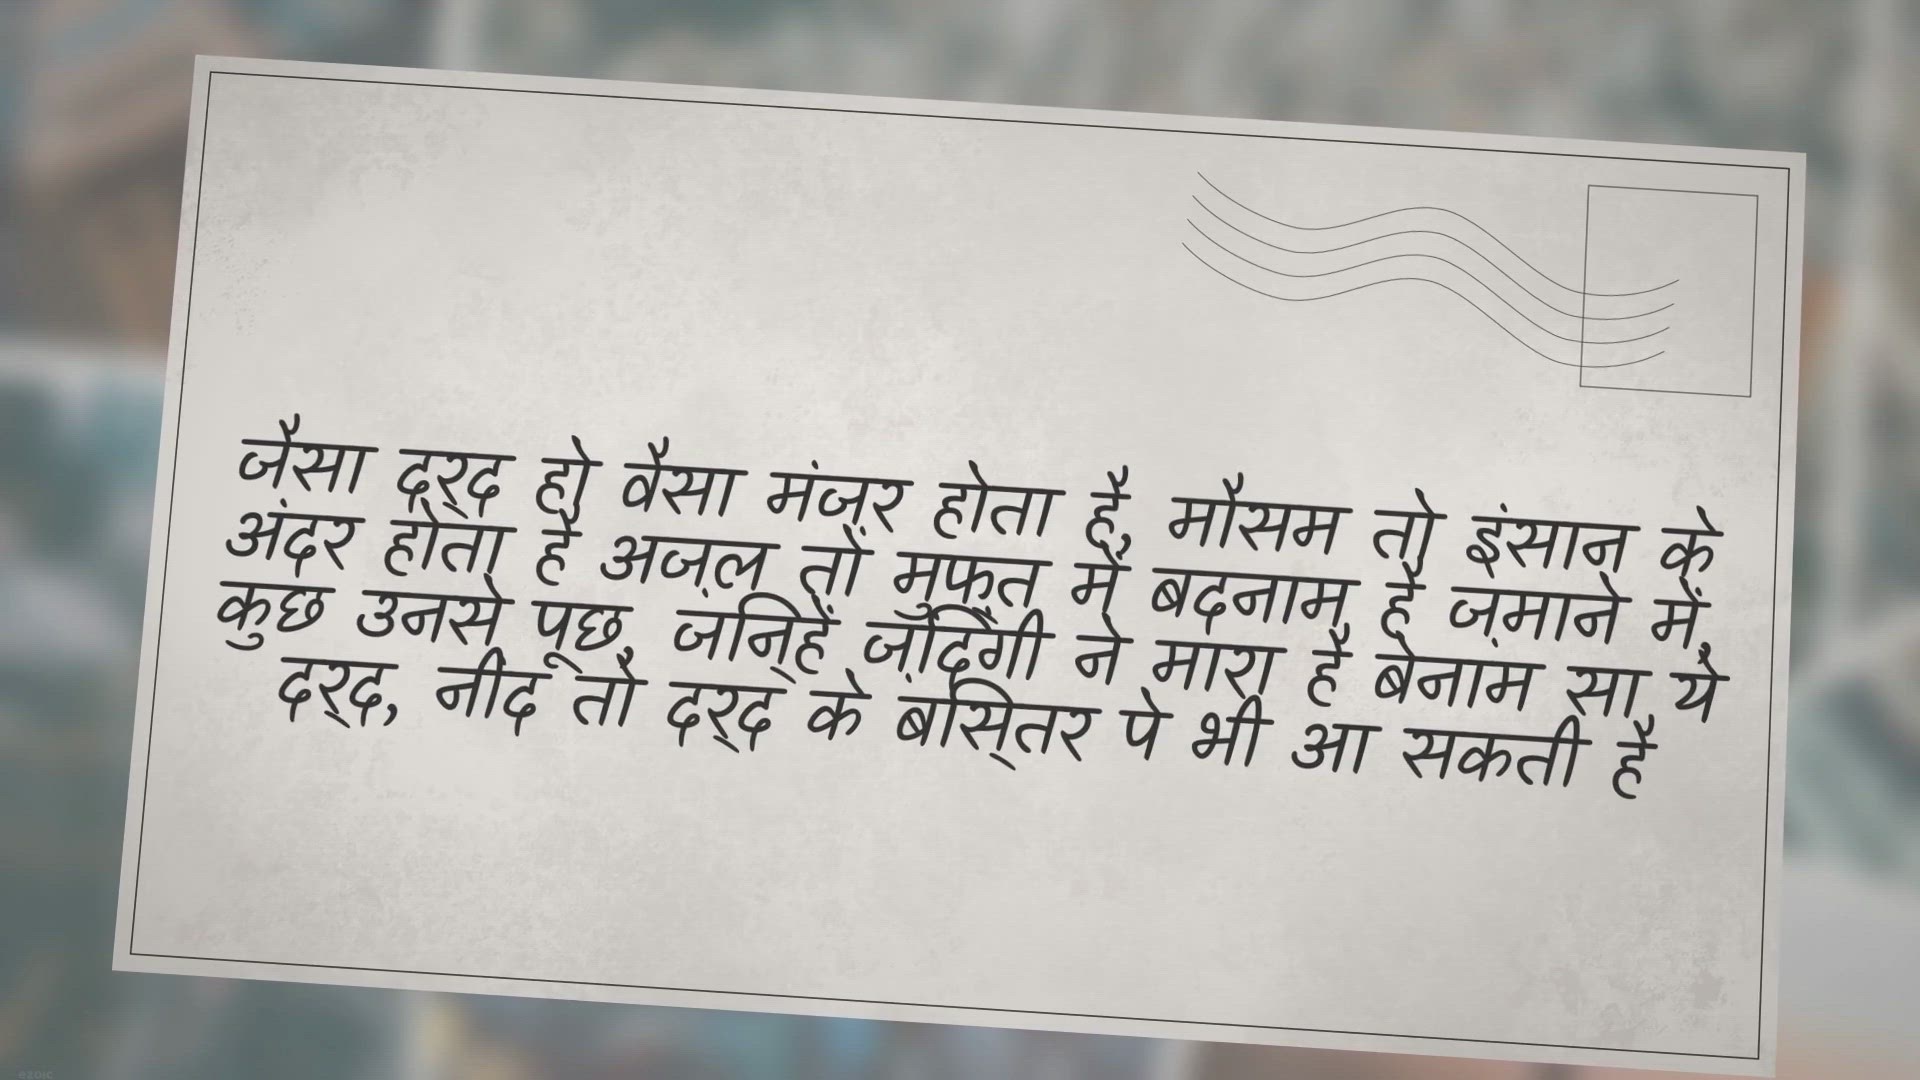 जैसा दर्द हो वैसा मंज़र होता है, मौसम तो इंसान के
अंदर होता है अज़ल तो मुफ़्त में बदनाम है ज़माने में,
कुछ उनसे पूछ, जिन्हें ज़िंदगी ने मारा है बेनाम सा ये
दर्द, नींद तो दर्द के बिस्तर पे भी आ सकती है
ezoic